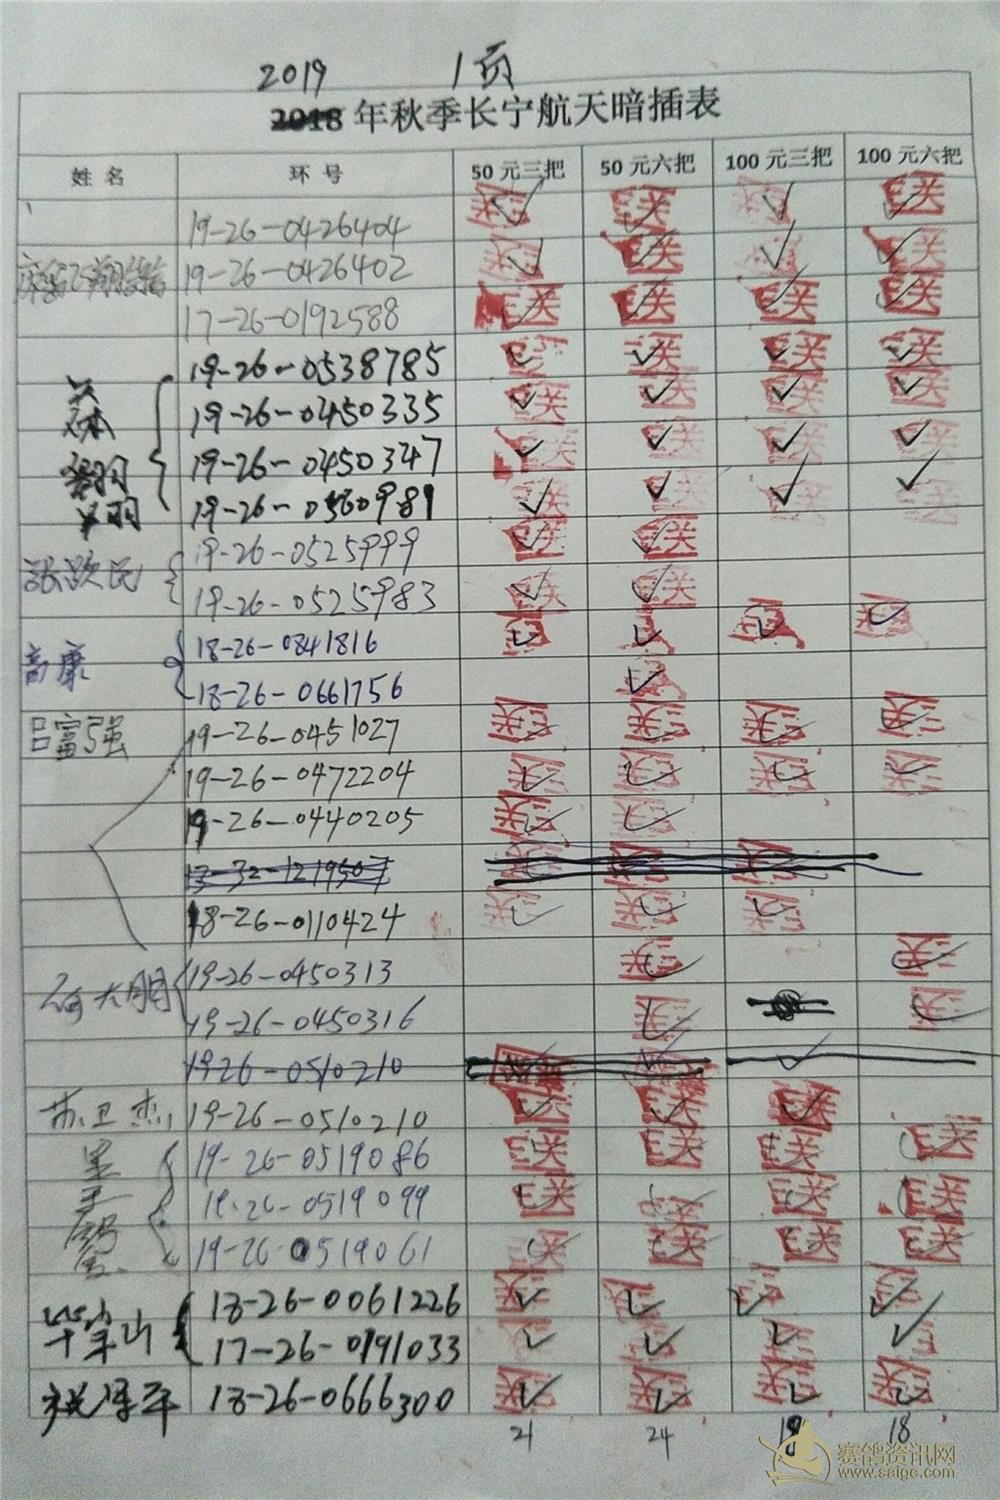 2019 1页
2018 年秋季长宁航天暗插表
姓名 环号 50元三把 50元六把 100元三把 100元六把
19-26-0426404
19-26-0426402
17-26-0192588
19-26-0538785
19-26-0450335
19-26-0450347
19-26-0560981
19-26-0525999
19-26-0525983
高康 18-26-0841816
18-26-0661756
吕富强 19-26-0451027
19-26-0472204
19-26-0440205
18-26-0110424
何大朋 19-26-0450313
19-26-0450316
19-26-0510210
苏卫杰 19-26-0510210
19-26-0519086
19-26-0519099
19-26-0519061
毕宝山 18-26-0061226
17-26-0191033
18-26-0666300
21 24 19 18
赛鸽资讯网
www.saige.com